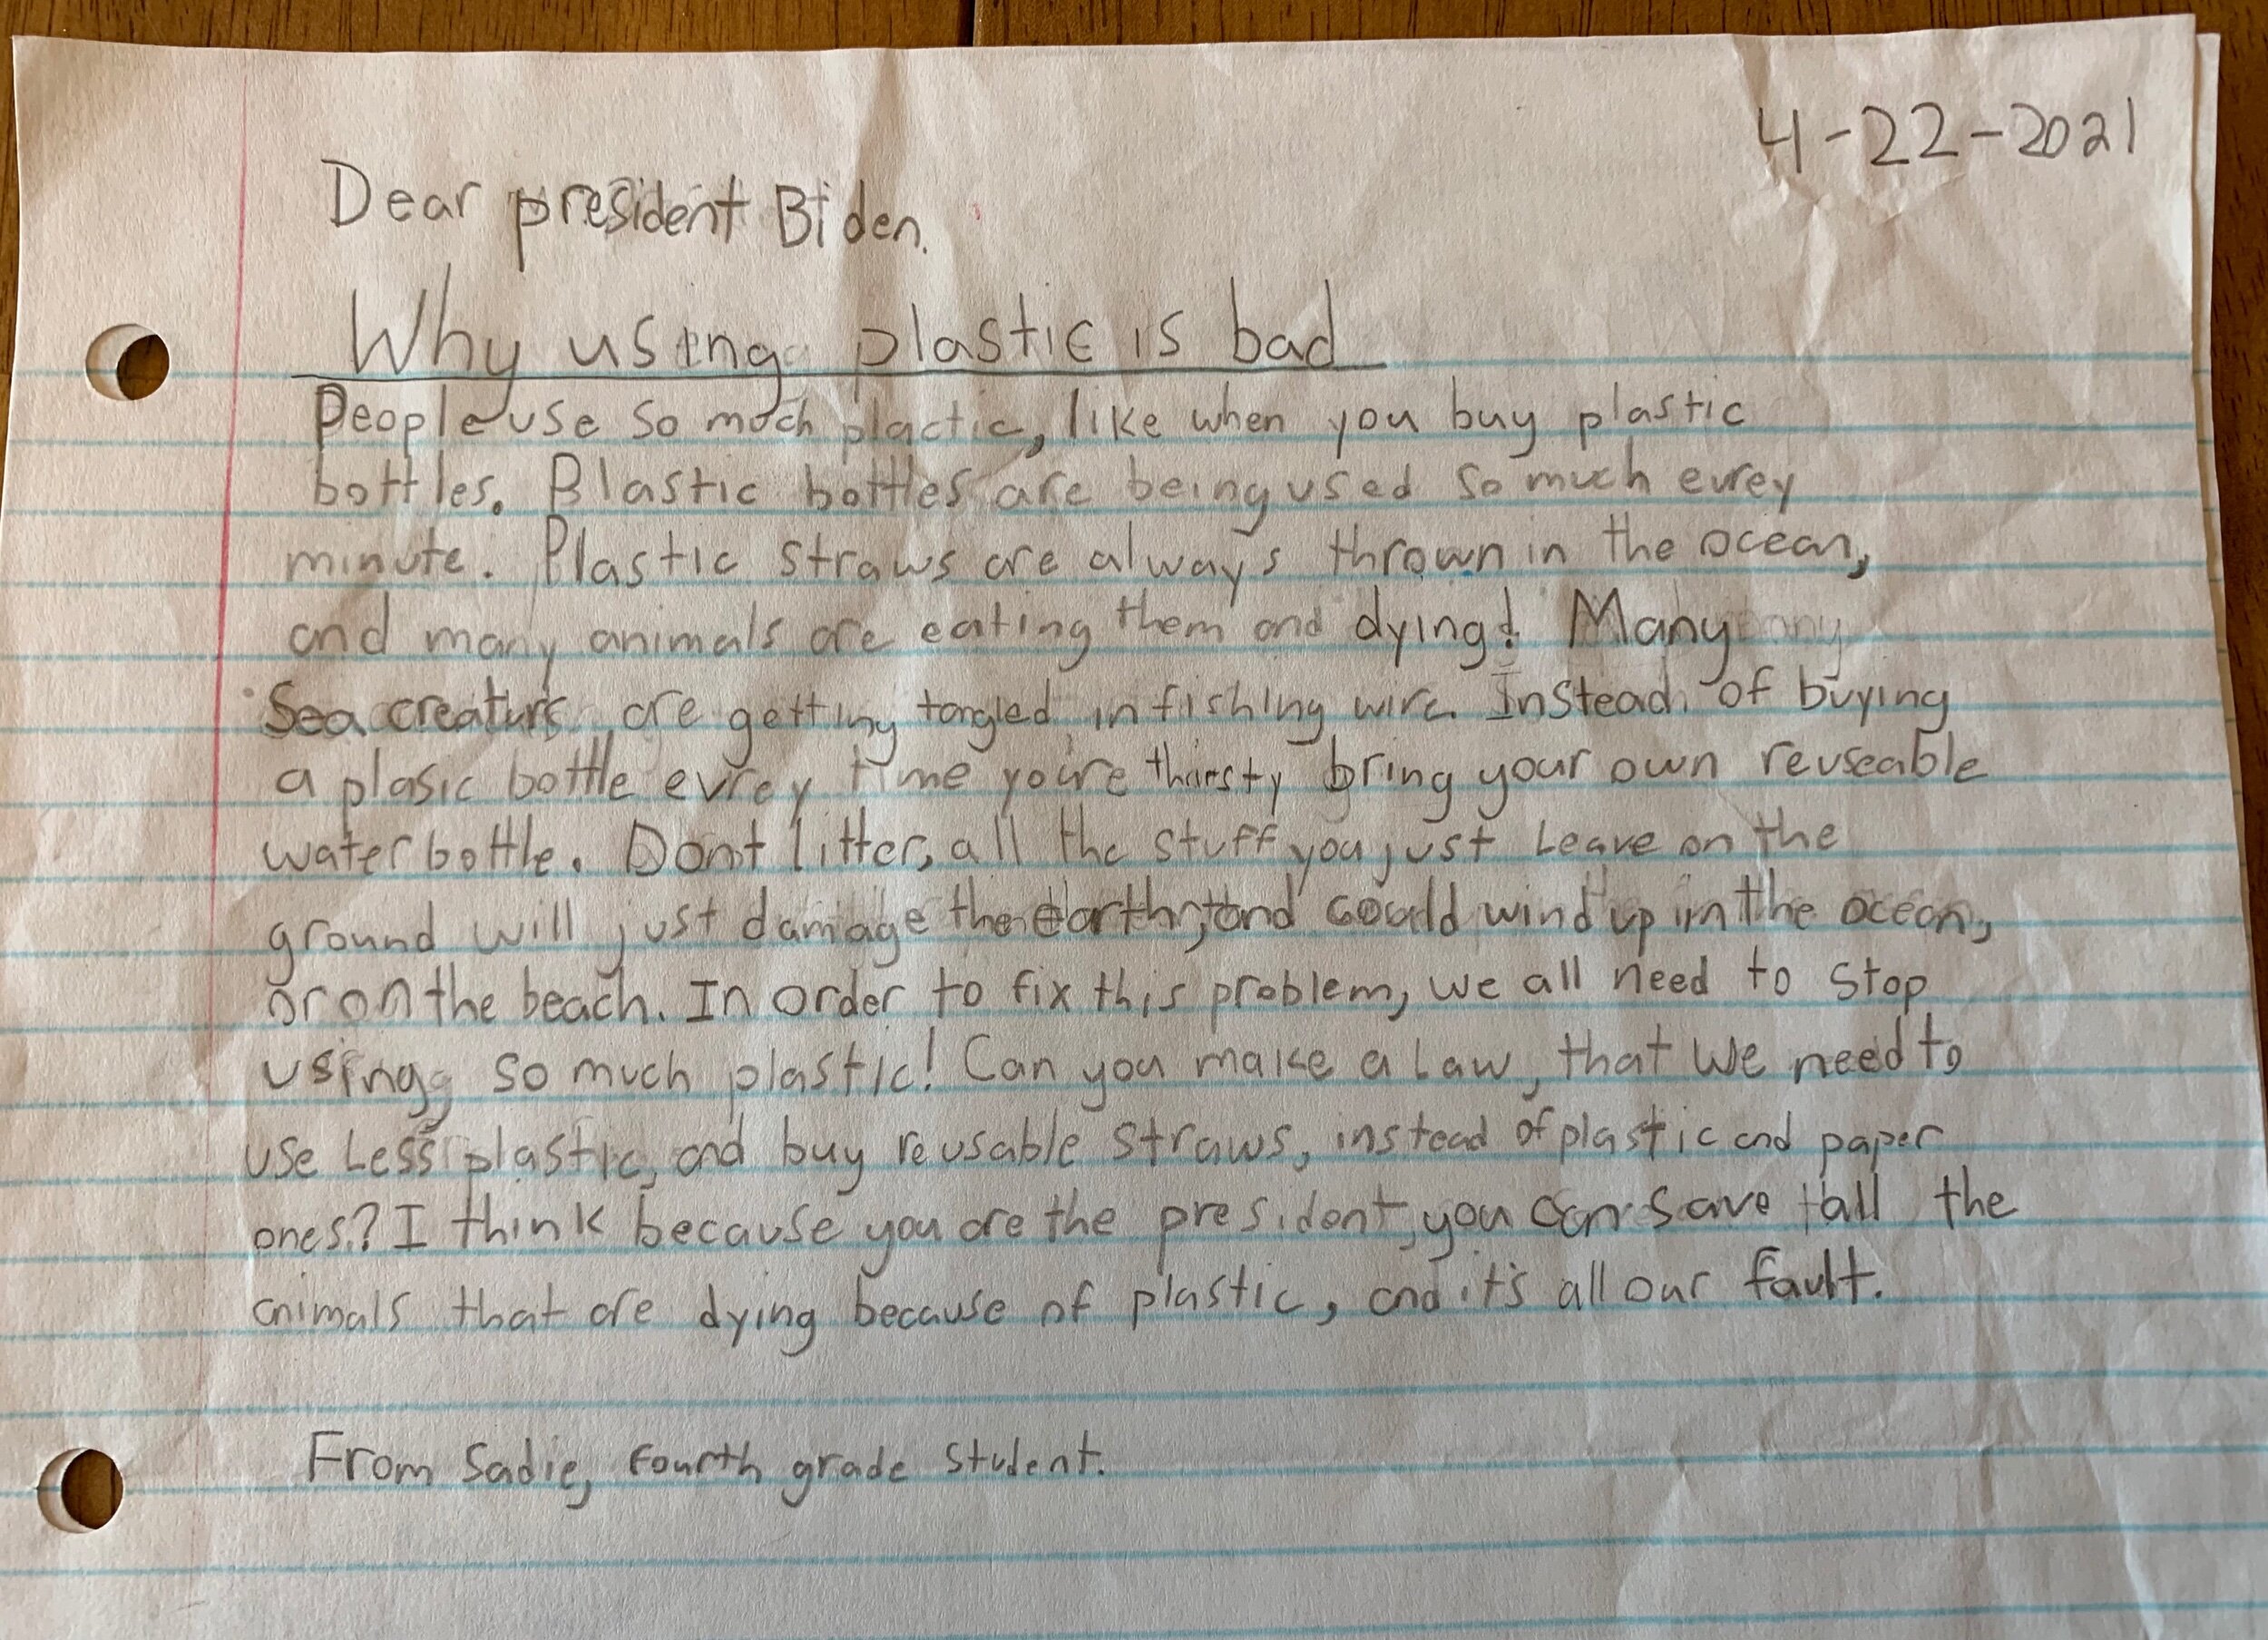 4-22-2021
Dear president Biden.
Why using plastic is bad
People use so much plactic, like when you buy plastic
bottles. Plastic bottles are being used so much evrey
minute. Plastic straws are always thrown in the ocean,
and many animals are eating them and dying! Many
Sea creaturs are getting tangled in fishing wire. Instead of buying
a plasic bottle evrey time you're thirsty bring your own reuseable
water bottle. Don't litter, all the stuff you just Leave on the
ground will just damage the earth, and could wind up in the ocean,
or on the beach. In order to fix this problem, we all need to stop
using so much plastic! Can you make a Law, that we need to
use Less plastic, and buy reusable straws, instead of plastic and paper
ones? I think because you are the president, you can save all the
animals that are dying because of plastic, and it's all our fault.
From Sadie, Fourth grade student.